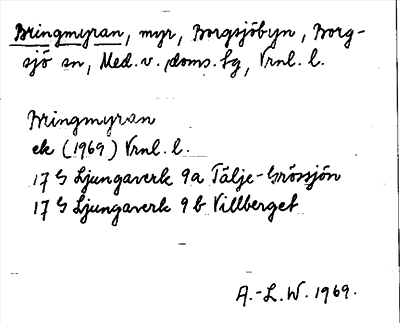 Bringmyran, myr, Borgsjöbyn, Borg-
sjö sn, Med. v. doms. sg, Vrnl. l.
Bringmyran
ek (1969) Vrnl. l.
17 G Ljungaverk 9a Tälje-Grössjön
17 G Ljungaverk 9b Villberget
A.-L.W. 1969.